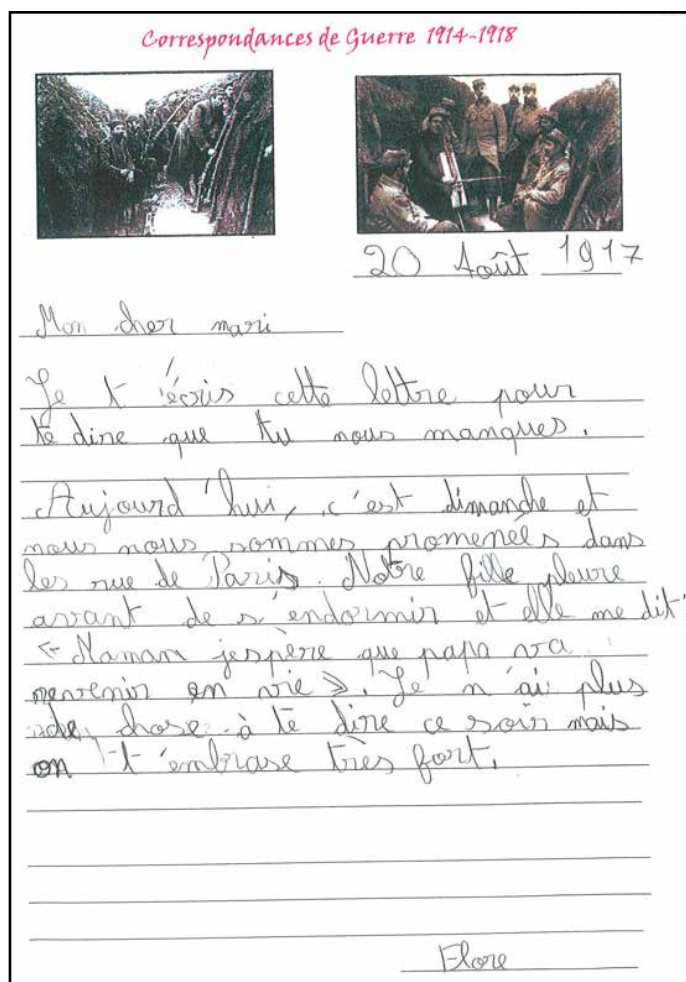 Correspondances de Guerre 1914-1918
20 Août 1917
Mon cher mari
Je t'écris cette lettre pour
te dire que tu nous manques.
Aujourd'hui, c'est dimanche et
nous nous sommes promenées dans
les rue de Paris. Notre fille pleure
avant de s'endormir et elle me dit :
« Maman jespère que papa va
revenir en vie ». Je n'ai plus
de chose à te dire ce soir mais
on t'embrase très fort.
Flore